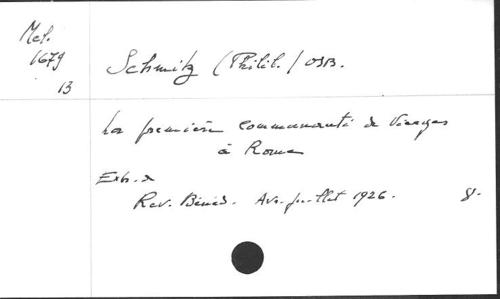 Mel.
1679
13
Schmitz (Philib.) OSB.
La première communauté de Vierges
à Rome
Extr. de
Rev. Bénéd. Avr.-juillet 1926. 8-